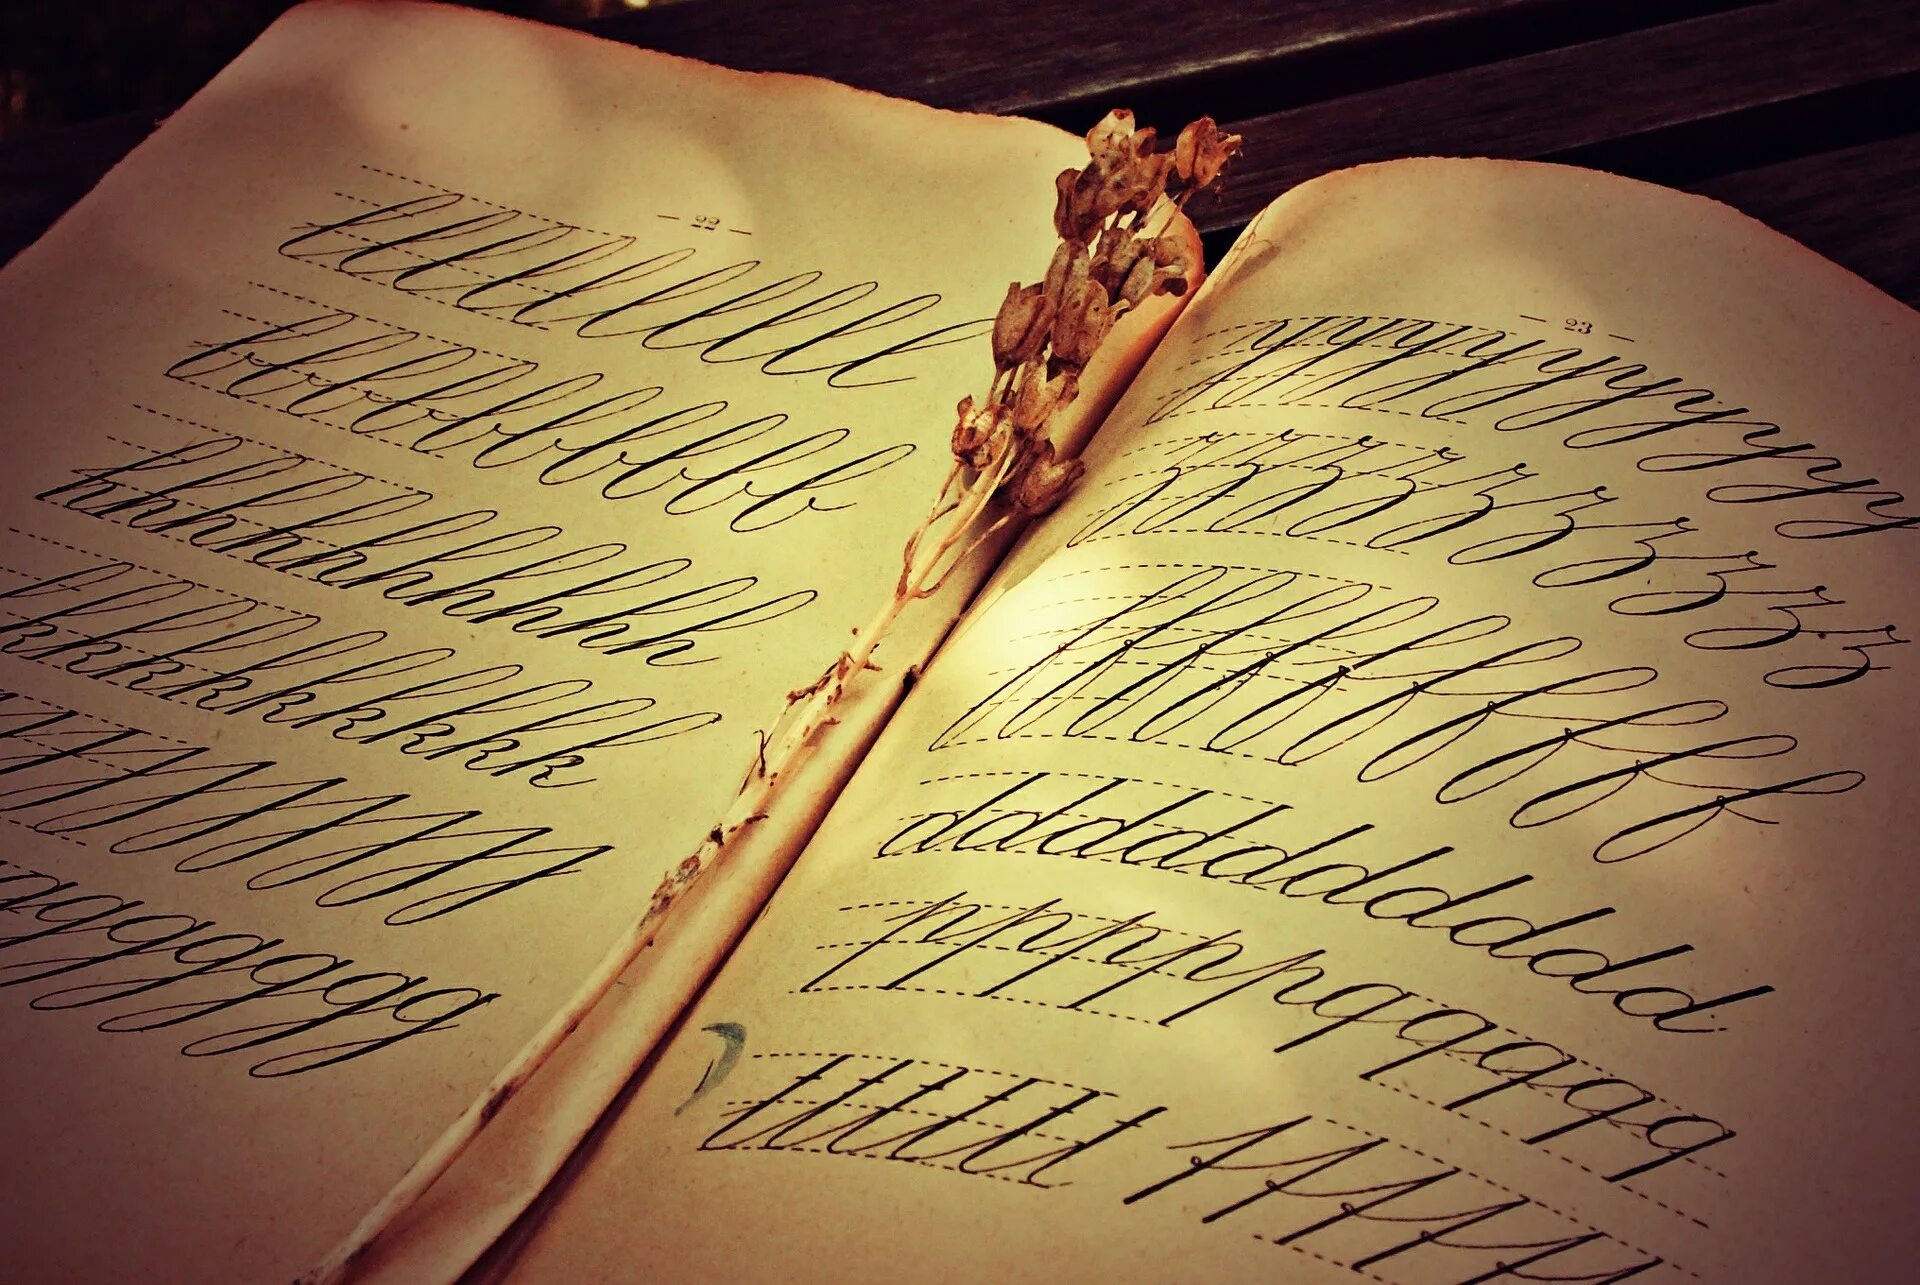 — 22 —
llllllllll
bbbbbbbbbb
hhhhhhhhhh
kkkkkkkkkk
jjjjjjjjj
gggggggg
— 23 —
yyyyyyyyyy
zzzzzzzzzz
ffffffffff
dddddddddd
pppppqqqqq
tttttt